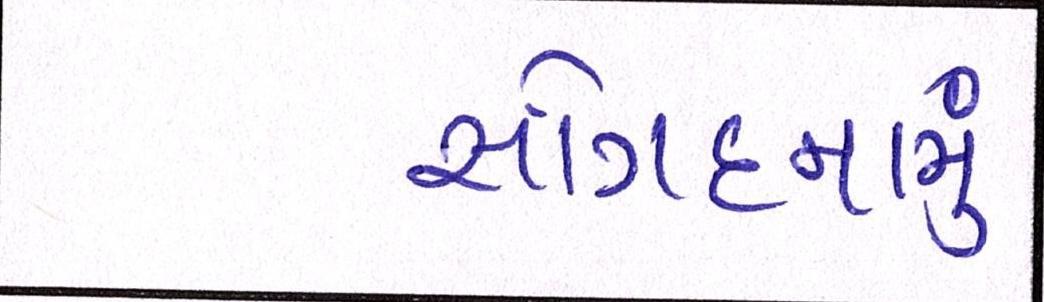 સોગદનામું